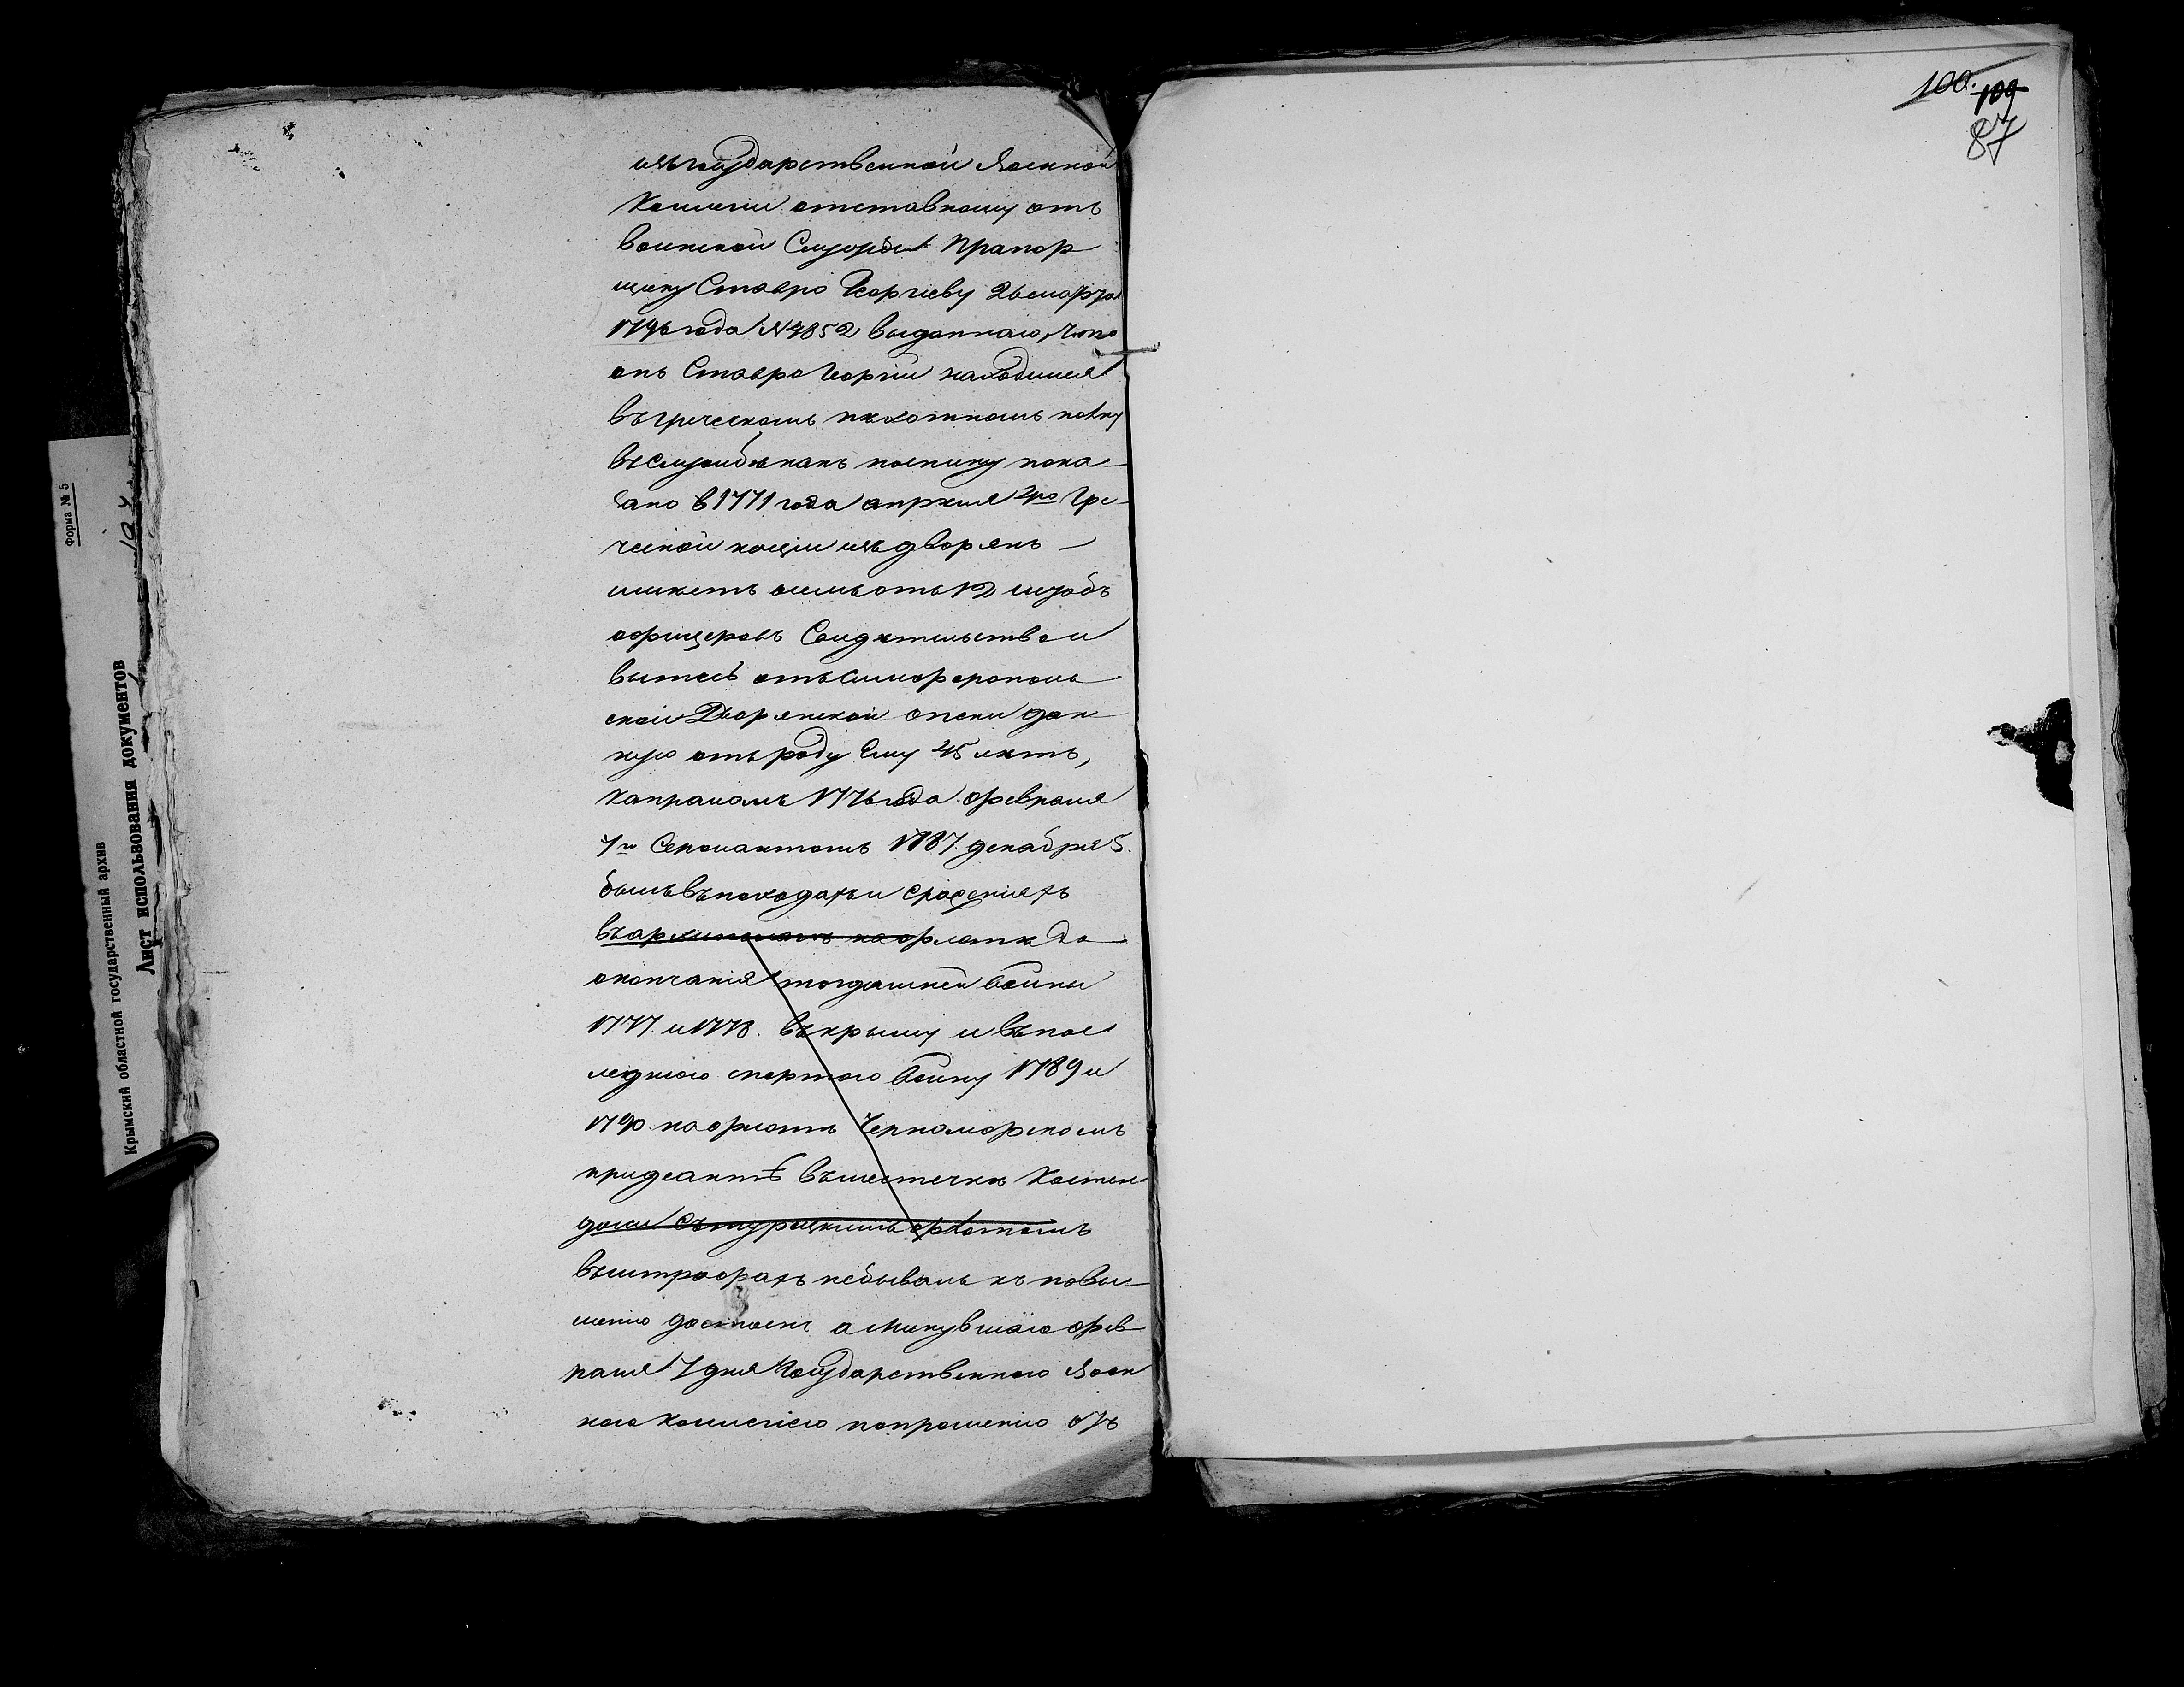 100. 109
87
изъ государственной Военной
Коллегии отставному отъ
воинской Службы Прапор
щику Ставро Георгиеву 26 марта
1796 года № 4852 выданнаго, что
онъ Ставро Георгии находился
въ греческомъ пехотномъ полку
въ службе какъ по списку пока-
зано в 1771 года апреля 2го Гре-
ческой нации изъ дворянъ —
имеетъ отъ 12 штабъ
офицеровъ Свидетельство и
отъ симферополь
ской Дворянской опеки дан
ную отъ роду Ему 45 летъ,
Капраломъ 1776 года февраля
7го Сержантомъ 1787. декабря 5.
былъ въ походахъ и сражениях
на флоте до
окончания тогдашней войны
1777. и 1778. въ крыму и въ пос
леднюю с портою войну 1789 и
1790 на флоте Черноморскомъ
при десанте въ местечке Кюстен
джи Съ турецкимъ флотомъ
въ штрафахъ небывалъ къ повы-
шению достоенъ а минувшаго фев
раля 7 дня Государственною Воен
ною Коллегиею по прошению
Форма № 5
Крымский областной государственный архив
Лист использования документов